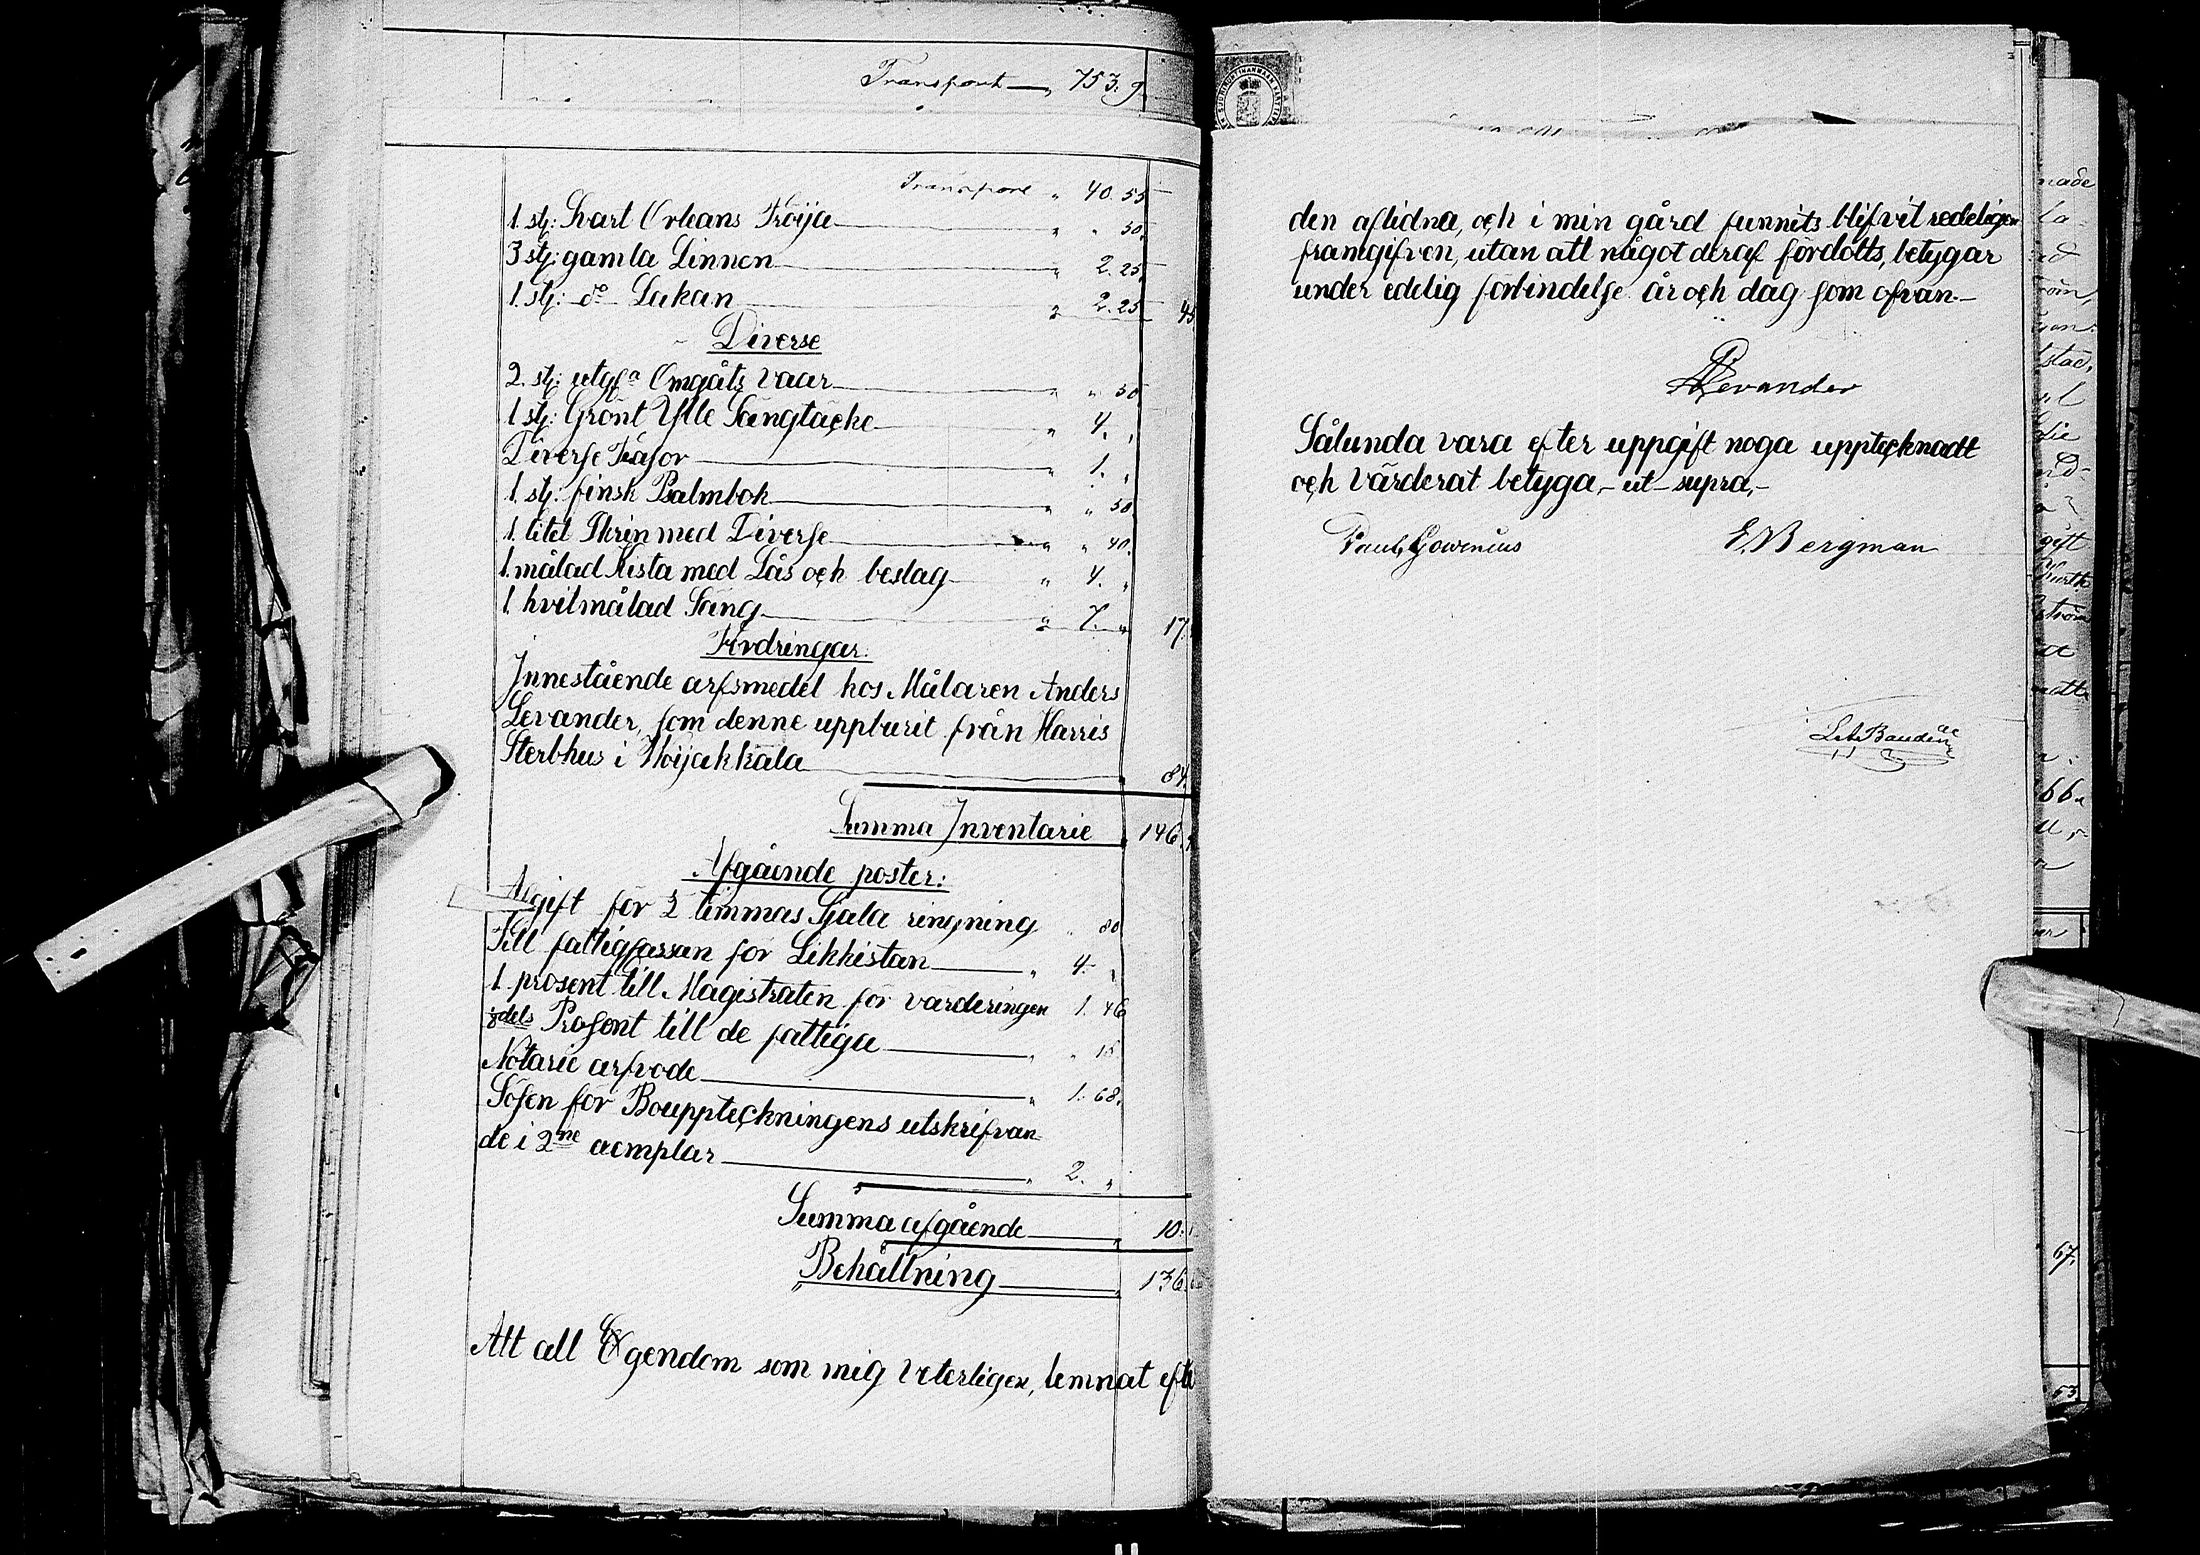 Transport " 753. 9
Transport " 40. 55
1. stj: Svart Orleans Tröija " " 50.
3 stj: gamla Linnen " 2. 25
1. stj: d:o Lakan " 2. 25 45
Diverse
2. stj: utgf:a Omgåts Vaar " " 50
1 stj: Grönt Ylle Sängtäcke " 4. "
Diverse Trasor " 1. "
1. stj: finsk Psalmbok " " 50.
1. litet Skrin med Diverse " " 40.
1. målad Kista med Lås och beslag " 4. "
1. hvitmålad Säng " 7. " 17.
Fordringar.
Innestående arfsmedel hos Målaren Anders
Levander, som denne uppburit från Harris
Sterbhus i Woijakkala 84.
Summa Inventarie 146.
Afgående poster:
Afgift för 2 timmas Sjala ringning " 80
Till fattigcassan för Likkistan " 4. "
1. prosent till Magistraten för värderingen 1. 46
1/8dels Prosent till de fattiga " " 15
Notarie arfvode " 1. 68.
Lösen för Bouppteckningens utskrifvan-
de i 2ne exemplar " 2. "
Summa afgående 10.
Behållning 136.
Att all Egendom som mig veterligen, lemnat efter
den aflidna, och i min gård funnits blifvit redeligen
framgifven, utan att något deraf fördolts, betygar
under edelig förbindelse år och dag som ofvan.-
Levander
Sålunda vara efter uppgift noga upptecknadt
och Värderat betyga,- ut- supra,-
Paul Gowenius E. Bergman
nade
la-
ad
röm,
gen.
stad,
ul
lie
nd-
gift
Kurth
ström
at
matt
a:
bba
u,-
a
67.
53